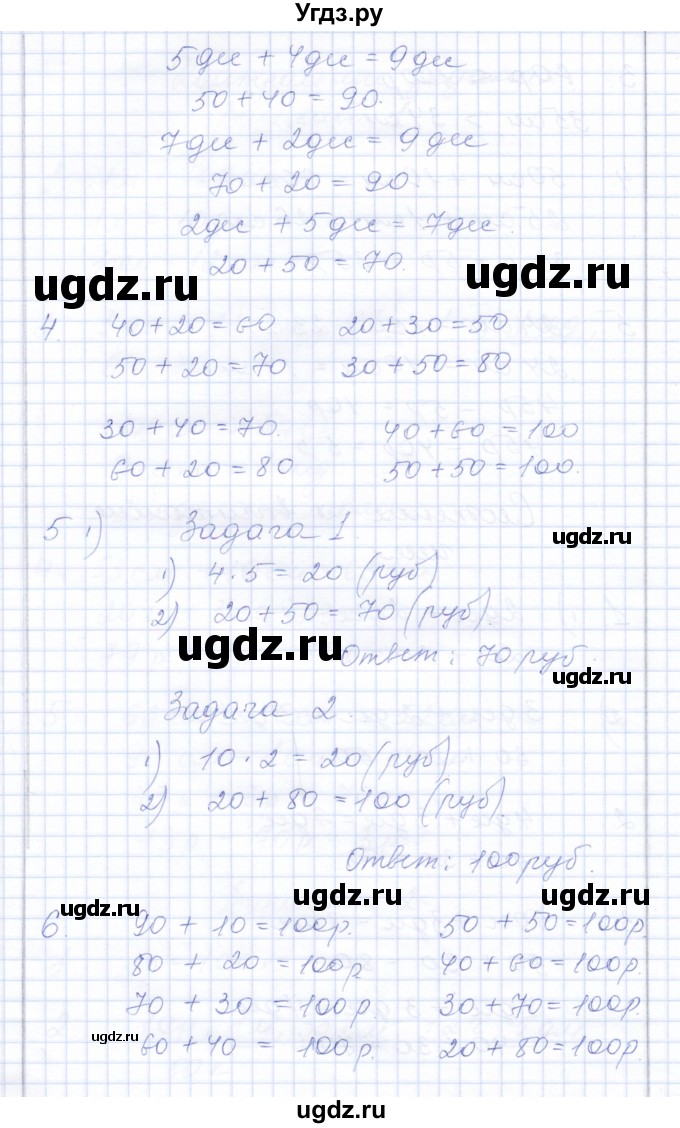 Угдз.ру
5дм + 4дм = 9дм
50 + 40 = 90.
7дм + 2дм = 9дм
70 + 20 = 90.
2дм + 5дм = 7дм.
20 + 50 = 70.
ugdz.ru ugdz.ru
4. 40 + 20 = 60 20 + 30 = 50
50 + 20 = 70 30 + 50 = 80
30 + 40 = 70. 40 + 60 = 100
60 + 20 = 80 50 + 50 = 100.
5 1) Задача 1
ugdz.ru
1) 4 · 5 = 20 (руб)
2) 20 + 50 = 70 (руб).
ugdz.ru
Ответ: 70 руб.
ugdz.ru
Задача 2.
1) 10 · 2 = 20 (руб)
2) 20 + 80 = 100 (руб).
Ответ: 100 руб.
ugdz.ru ugdz.ru ugdz.ru
6. 90 + 10 = 100р. 50 + 50 = 100р.
80 + 20 = 100р 40 + 60 = 100р.
70 + 30 = 100р. 30 + 70 = 100р.
ugdz.ru
60 + 40 = 100р. 20 + 80 = 100р.
ugdz.ru